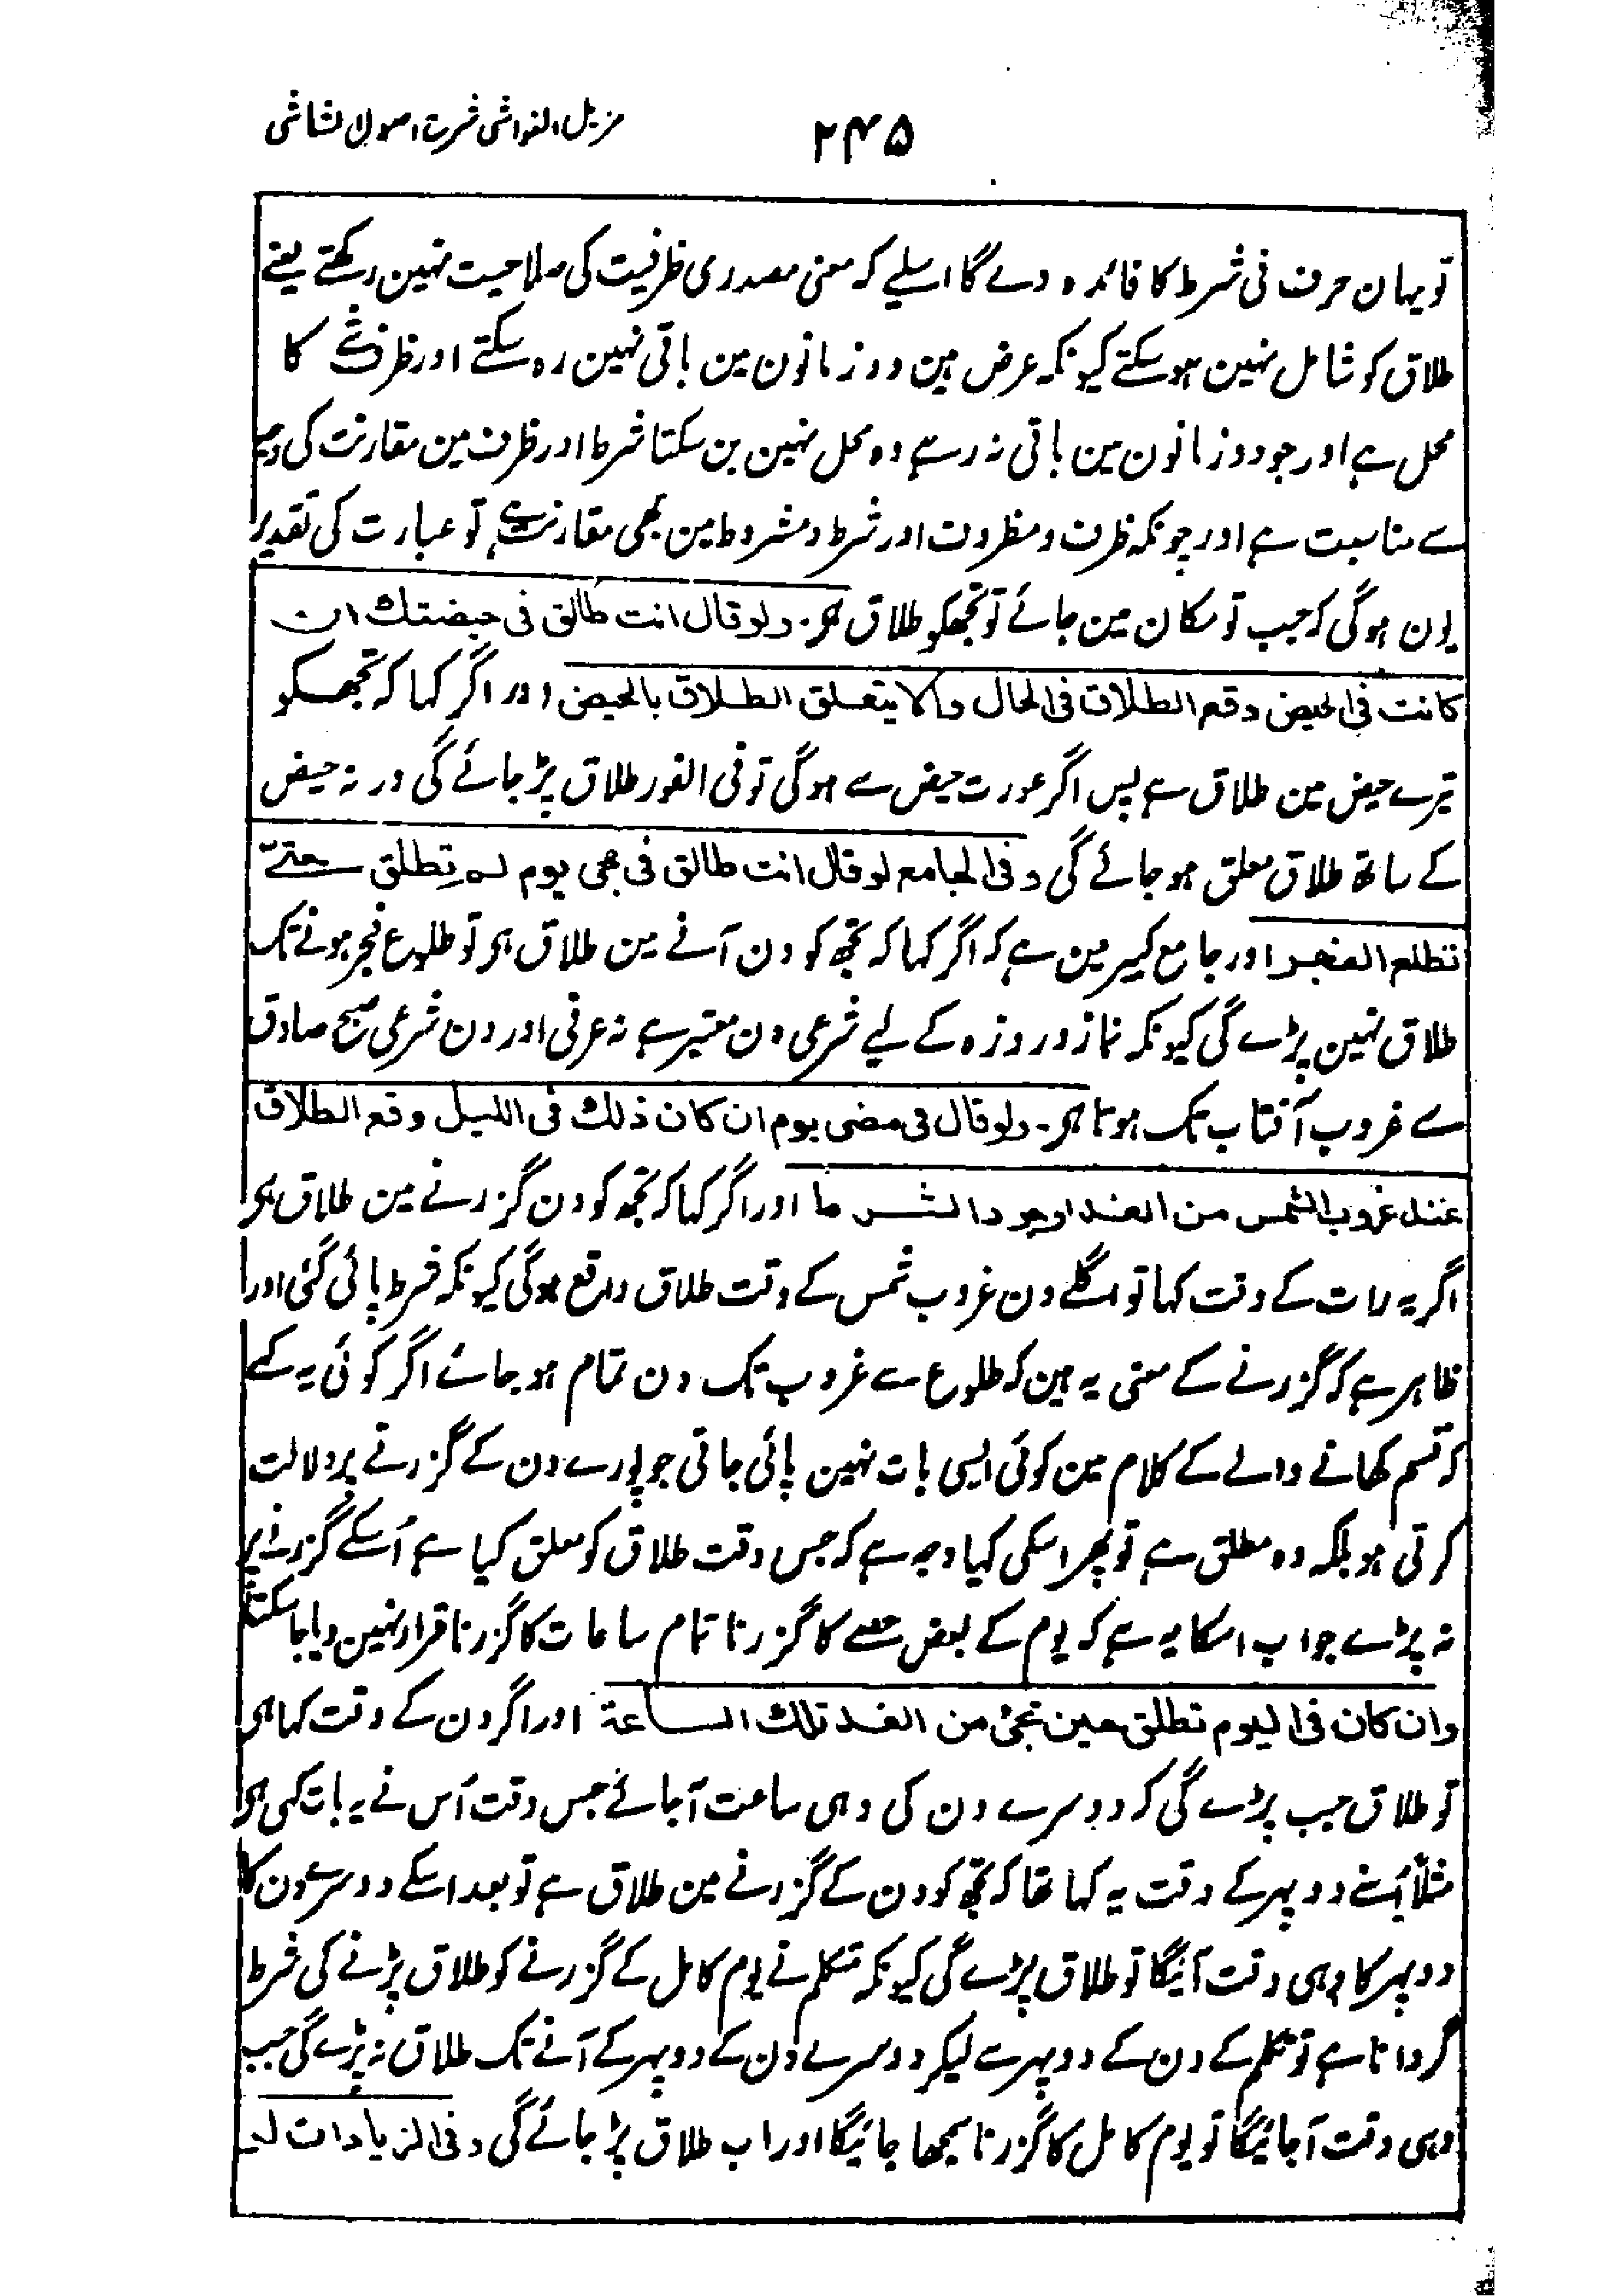 ۲۴۵ مزیل الغواشی شرح اصول الشاشی
تو یہان حرف فی شرط کا فائدہ دے گا اسلیے کہ معنی مصدری ظرفیت کی صلاحیت نہین رکھتے یعنے
طلاق کو شامل نہین ہو سکتے کیونکہ عرض ہین دو زمانون مین باقی نہین رہ سکتے اور ظرف شے کا
محل ہے اور جو دو زمانون مین باقی نہ رہے وہ محل نہین بن سکتا شرط اور ظرف مین مقارنت کی وجہ
سے مناسبت ہے اور چونکہ ظرف و مظروف اور شرط و مشروط مین بھی مقارنت ہے تو عبارت کی تقدیر
یون ہو گی کہ جب تو مکان مین جائے تو تجھکو طلاق ہی۔ ولو قال انت طالق فی حیضتك ان
كانت فی الحیض وقع الطلاق فی الحال والا یتعلق الطلاق بالحیض اور اگر کہا کہ تجھکو
تیرے حیض مین طلاق ہے پس اگر عورت حیض سے ہو گی تو فی الفور طلاق پڑ جائے گی ورنہ حیض
کے ساتھ طلاق معلق ہو جائے گی وفی الجامع لو قال انت طالق فی مجی یوم لم تطلق حتے
تطلع الفجر اور جامع کبیر مین ہے کہ اگر کہا کہ تجھ کو دن آنے مین طلاق ہی تو طلوع فجر ہونے تک
طلاق نہین پڑے گی کیونکہ نماز و روزہ کے لیے شرعی دن معتبر ہے نہ عرفی اور دن شرعی صبح صادق
سے غروب آفتاب تک ہوتا ہی۔ ولو قال فی مضی یوم ان کان ذلك فی اللیل وقع الطلاق
عند غروب الشمس من الغد لوجود الشرط اور اگر کہا کہ تجھ کو دن گزرنے مین طلاق ہی
اگر یہ رات کے وقت کہا تو اگلے دن غروب شمس کے وقت طلاق واقع ہو گی کیونکہ شرط پائی گئی اور
ظاہر ہے کہ گزرنے کے معنی یہ ہین کہ طلوع سے غروب تک دن تمام ہو جائے اگر کوئی یہ کہے
کہ قسم کھانے والے کے کلام مین کوئی ایسی بات نہین پائی جاتی جو پورے دن کے گزرنے پر دلالت
کرتی ہو بلکہ وہ مطلق ہے تو پھر اسکی کیا وجہ ہے کہ جس وقت طلاق کو معلق کیا ہے اُسکے گزرنے پر
نہ پڑے جواب اسکا یہ ہے کہ یوم کے بعض حصے کا گزرنا تمام ساعات کا گزرنا قرار نہین دیا جا سکتا
وان کان فی الیوم تطلق حین تجئ من الغد تلك الساعة اور اگر دن کے وقت کہا ہی
تو طلاق جب پڑے گی کہ دوسرے دن کی وہی ساعت آجائے جس وقت اُس نے یہ بات کہی ہی
مثلاً اُسنے دوپہر کے وقت یہ کہا تھا کہ تجھ کو دن کے گزرنے مین طلاق ہے تو بعد اسکے دوسرے دن کا
دوپہر کا وہی وقت آئیگا تو طلاق پڑے گی کیونکہ متکلم نے یوم کامل کے گزرنے کو طلاق پڑنے کی شرط
گردانا ہے تو تکلم کے دن کے دوپہر سے لیکر دوسرے دن کے دوپہر کے آنے تک طلاق نہ پڑے گی جب
وہی وقت آجائیگا تو یوم کامل کا گزرنا سمجھا جائیگا اور اب طلاق پڑ جائے گی وفی الزیادات لو